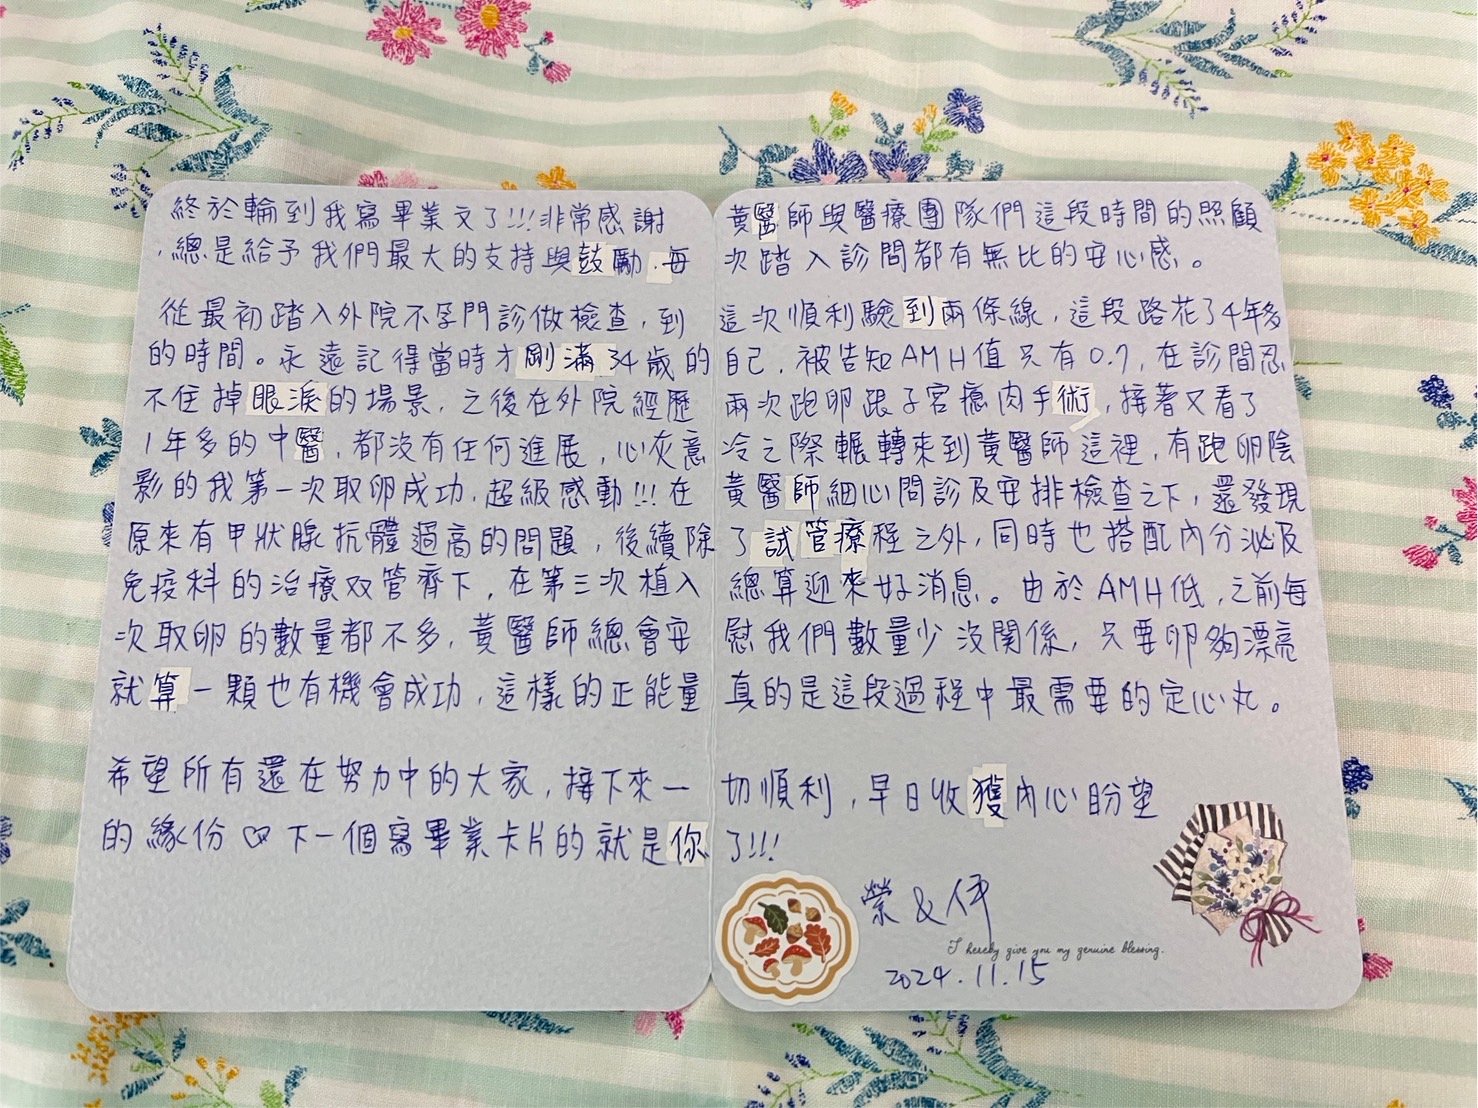 終於輪到我寫畢業文了!!!非常感謝黃醫師與醫療團隊們這段時間的照顧
,總是給予我們最大的支持與鼓勵,每次踏入診間都有無比的安心感。
從最初踏入外院不孕門診做檢查,到這次順利驗到兩條線,這段路花了4年多
的時間。永遠記得當時才剛滿34歲的自己,被告知AMH值只有0.7,在診間忍
不住掉眼淚的場景,之後在外院經歷兩次跑卵跟子宮瘜肉手術,接著又看了
1年多的中醫,都沒有任何進展,心灰意冷之際輾轉來到黃醫師這裡,有跑卵陰
影的我第一次取卵成功,超級感動!!!在黃醫師細心問診及安排檢查之下,還發現
原來有甲狀腺抗體過高的問題,後續除了試管療程之外,同時也搭配內分泌及
免疫科的治療双管齊下,在第三次植入總算迎來好消息。由於AMH低,之前每
次取卵的數量都不多,黃醫師總會安慰我們數量少沒關係,只要卵夠漂亮
就算一顆也有機會成功,這樣的正能量真的是這段過程中最需要的定心丸。
希望所有還在努力中的大家,接下來一切順利,早日收獲內心盼望
的緣份♡下一個寫畢業卡片的就是你了!!!
榮&伃
I hereby give you my genuine blessing.
2024.11.15